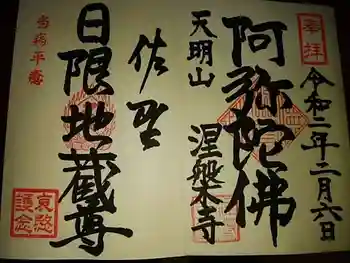 奉拝
令和二年二月六日
阿弥陀佛
天明山
涅槃寺
佐野
日限地蔵尊
当病平癒